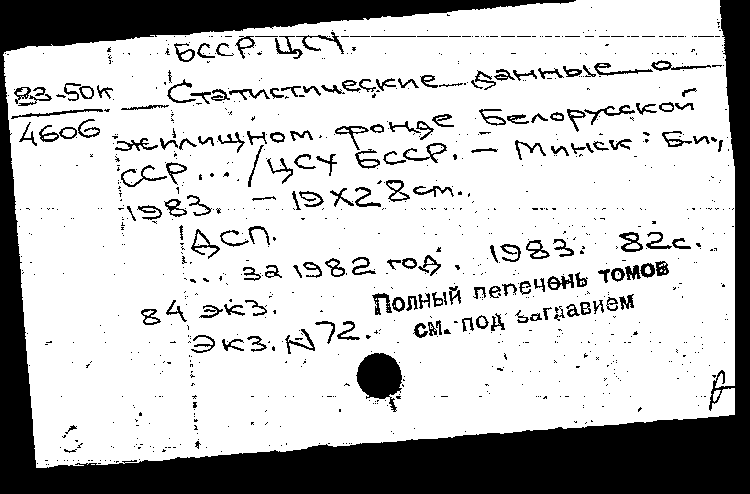 БССР. ЦСУ.
83-50к
4606
Статистические данные о
жилищном фонде Белорусской
ССР... /ЦСУ БССР. – Минск: Б.и.,
1983. – 19×28см..
ДСП.
... за 1982 год. 1983. 82с.
84 экз.
Экз. N 72.
Полный перечень томов
см. под заглавием